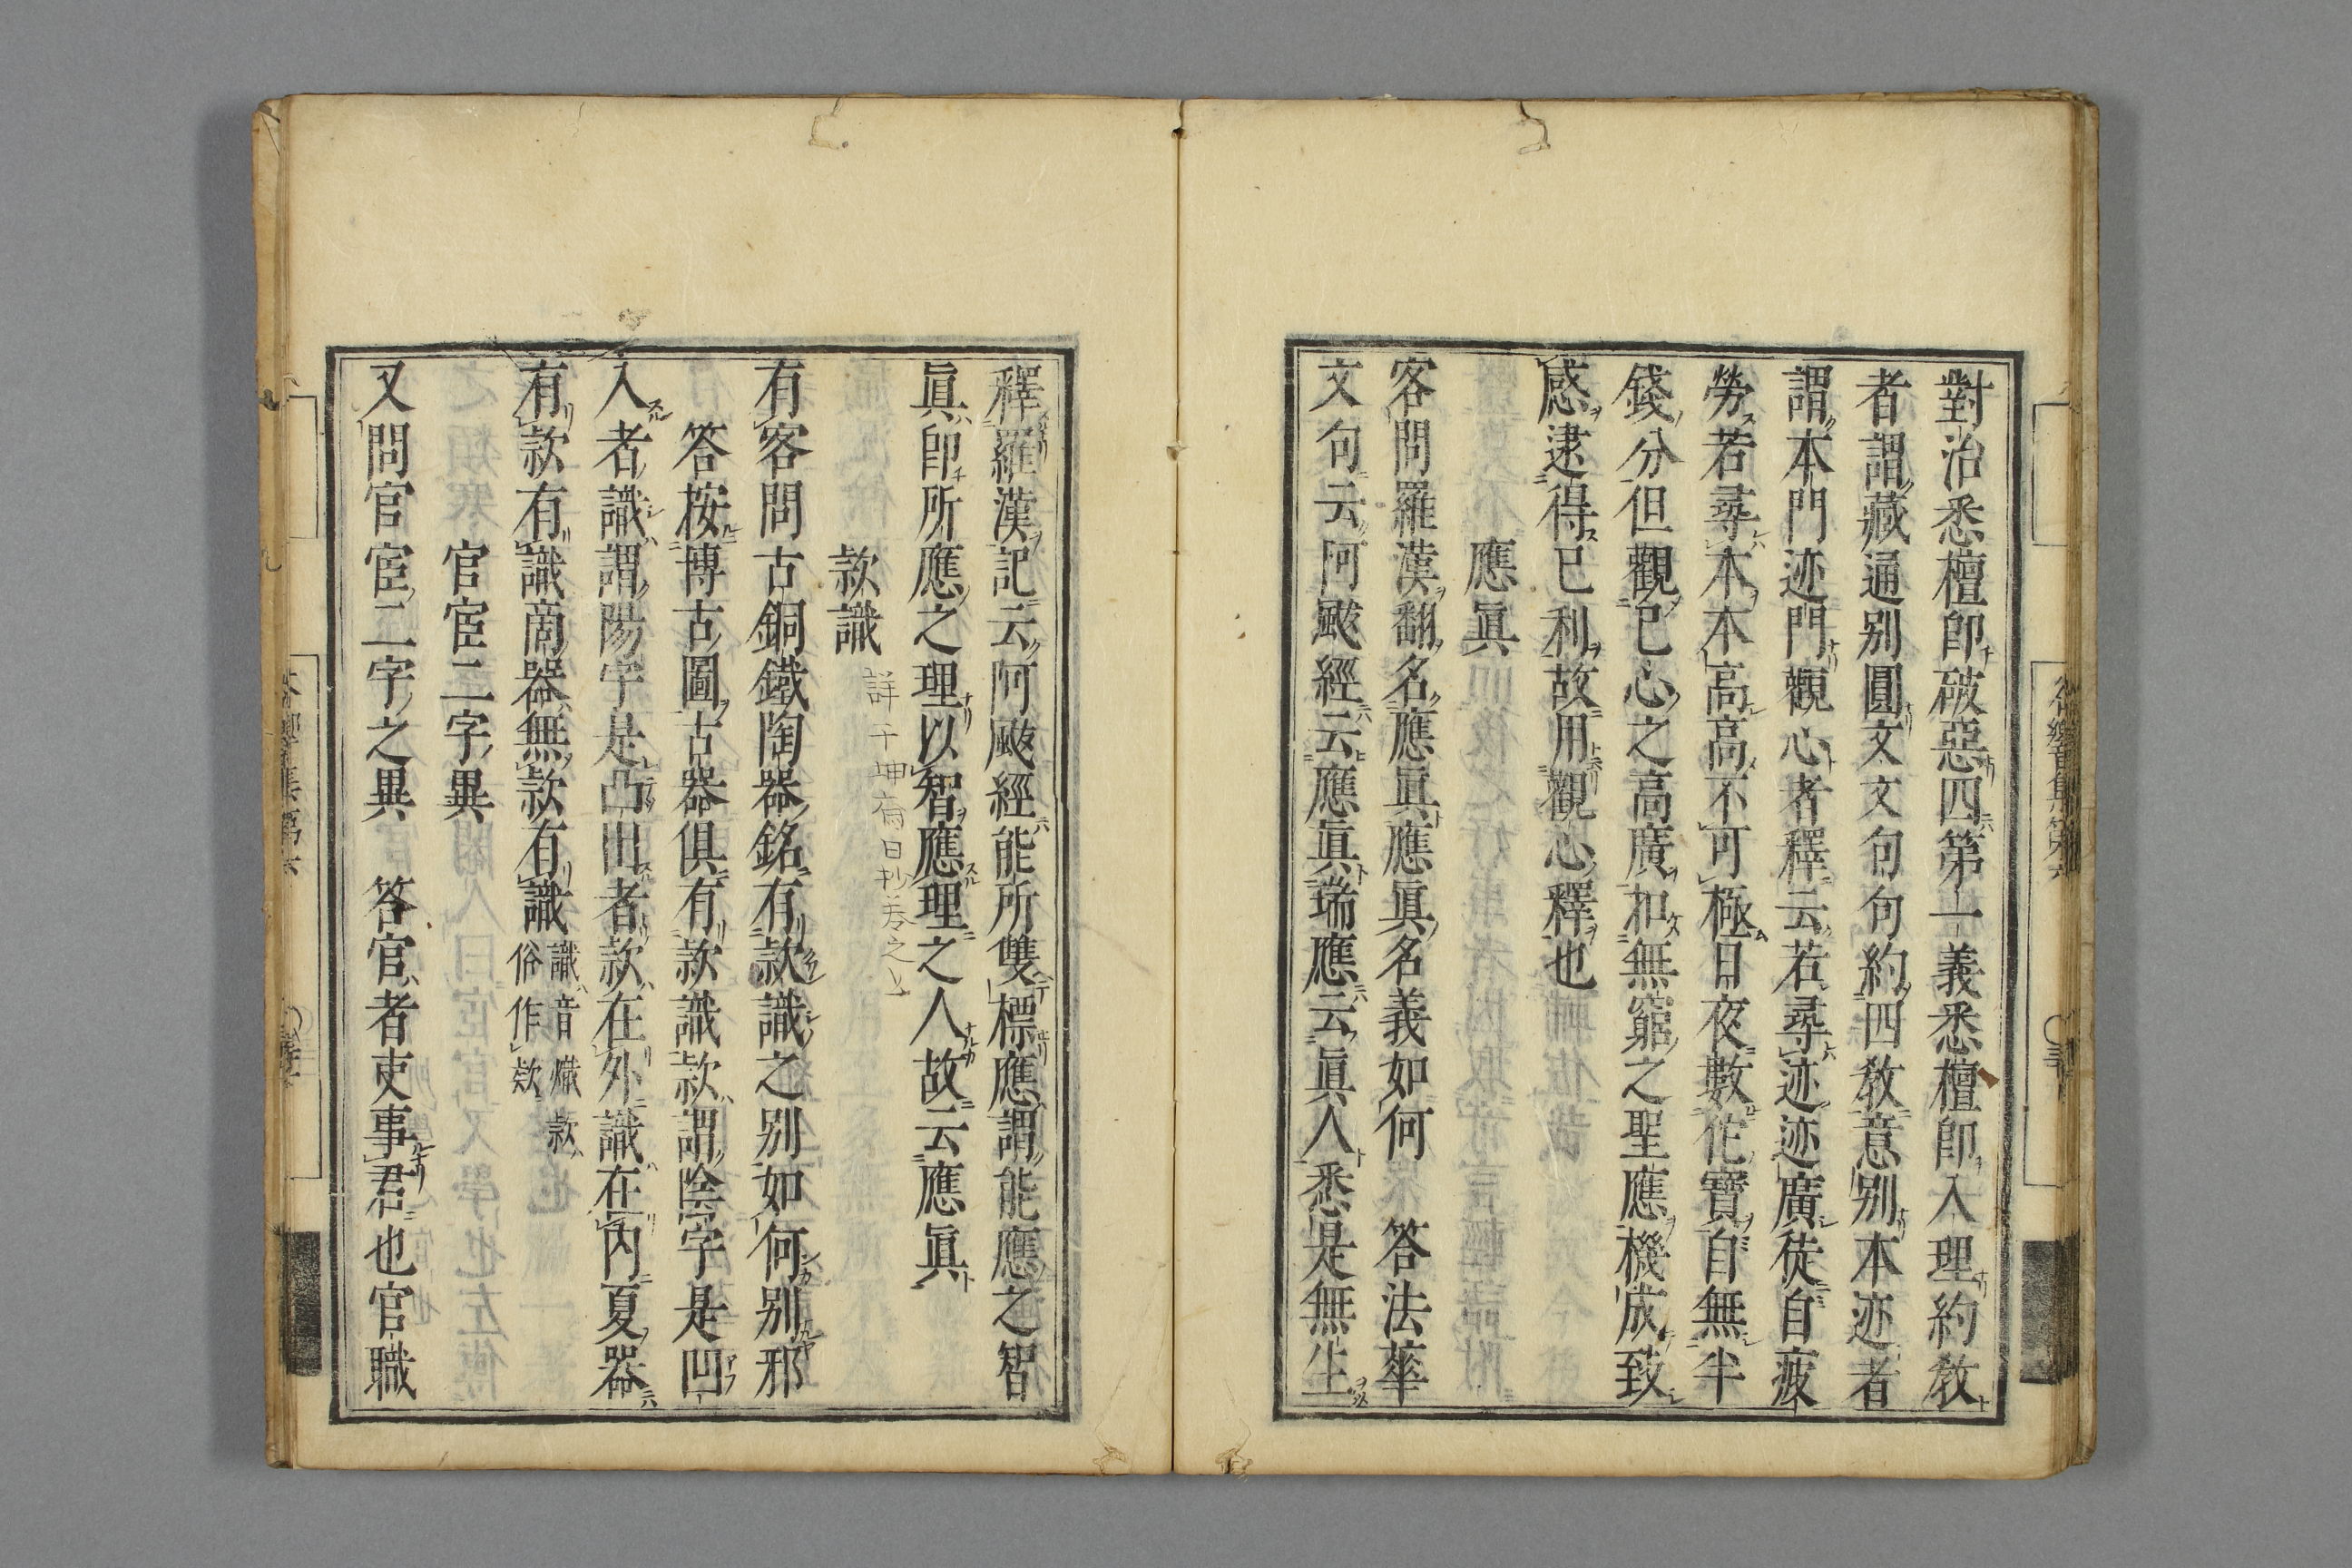 對治悉檀即破惡四第一義悉檀即入理約教
者謂藏通別圓文文句句約四教意別本迹者
謂本門迹門觀心者釋云若尋迹迹廣徒自疲
勞若尋本本高高不可極日夜數佗寶自無半
錢分但觀己心之高廣扣無窮之聖應機成致
感逮得已利故用觀心釋也
應眞
客問羅漢翻名應眞應眞名義如何 答法華
文句云阿颰經云應眞瑞應云眞人悉是無生
釋羅漢記云阿颰經能所雙標應謂能應之智
眞即所應之理以智應理之人故云應眞
款識
詳于坤齋日抄卷之上
有客問古銅鐵陶器銘有款識之別如何別邪
答按博古圖古器俱有款識款謂陰字是凹
入者識謂陽字是凸出者款在外識在內夏器
有款有識商器無款有識 識音熾款
俗作欵
官宦二字異
又問官宦二字之異 答官者吏事君也官職